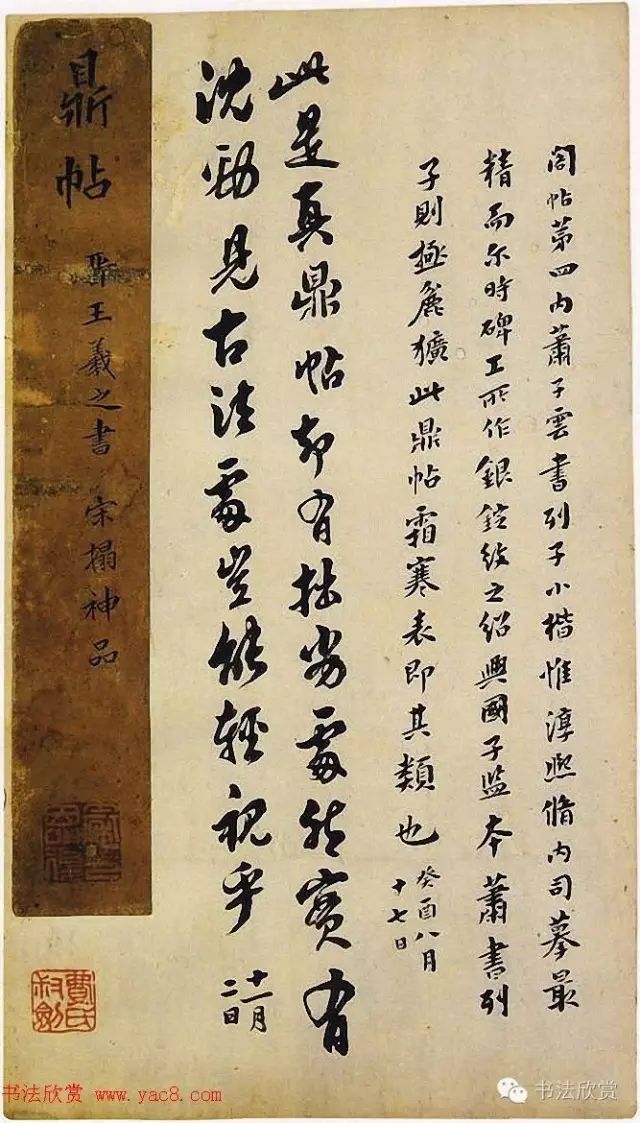 閣帖第四内蕭子雲書列子小楷惟淳熙脩内司摹最
精而尔時碑工所作銀錠紋之紹興國子監本蕭書列
子則極麄獷此鼎帖霜寒表即其類也
癸酉八月
十七日
此是真鼎帖却有拙劣處然實有
沈勁見古法處豈能輕視乎
十一月
二日
鼎帖
王羲之書 宋搨神品
費氏
书法欣赏 www.yac8.com
书法欣赏